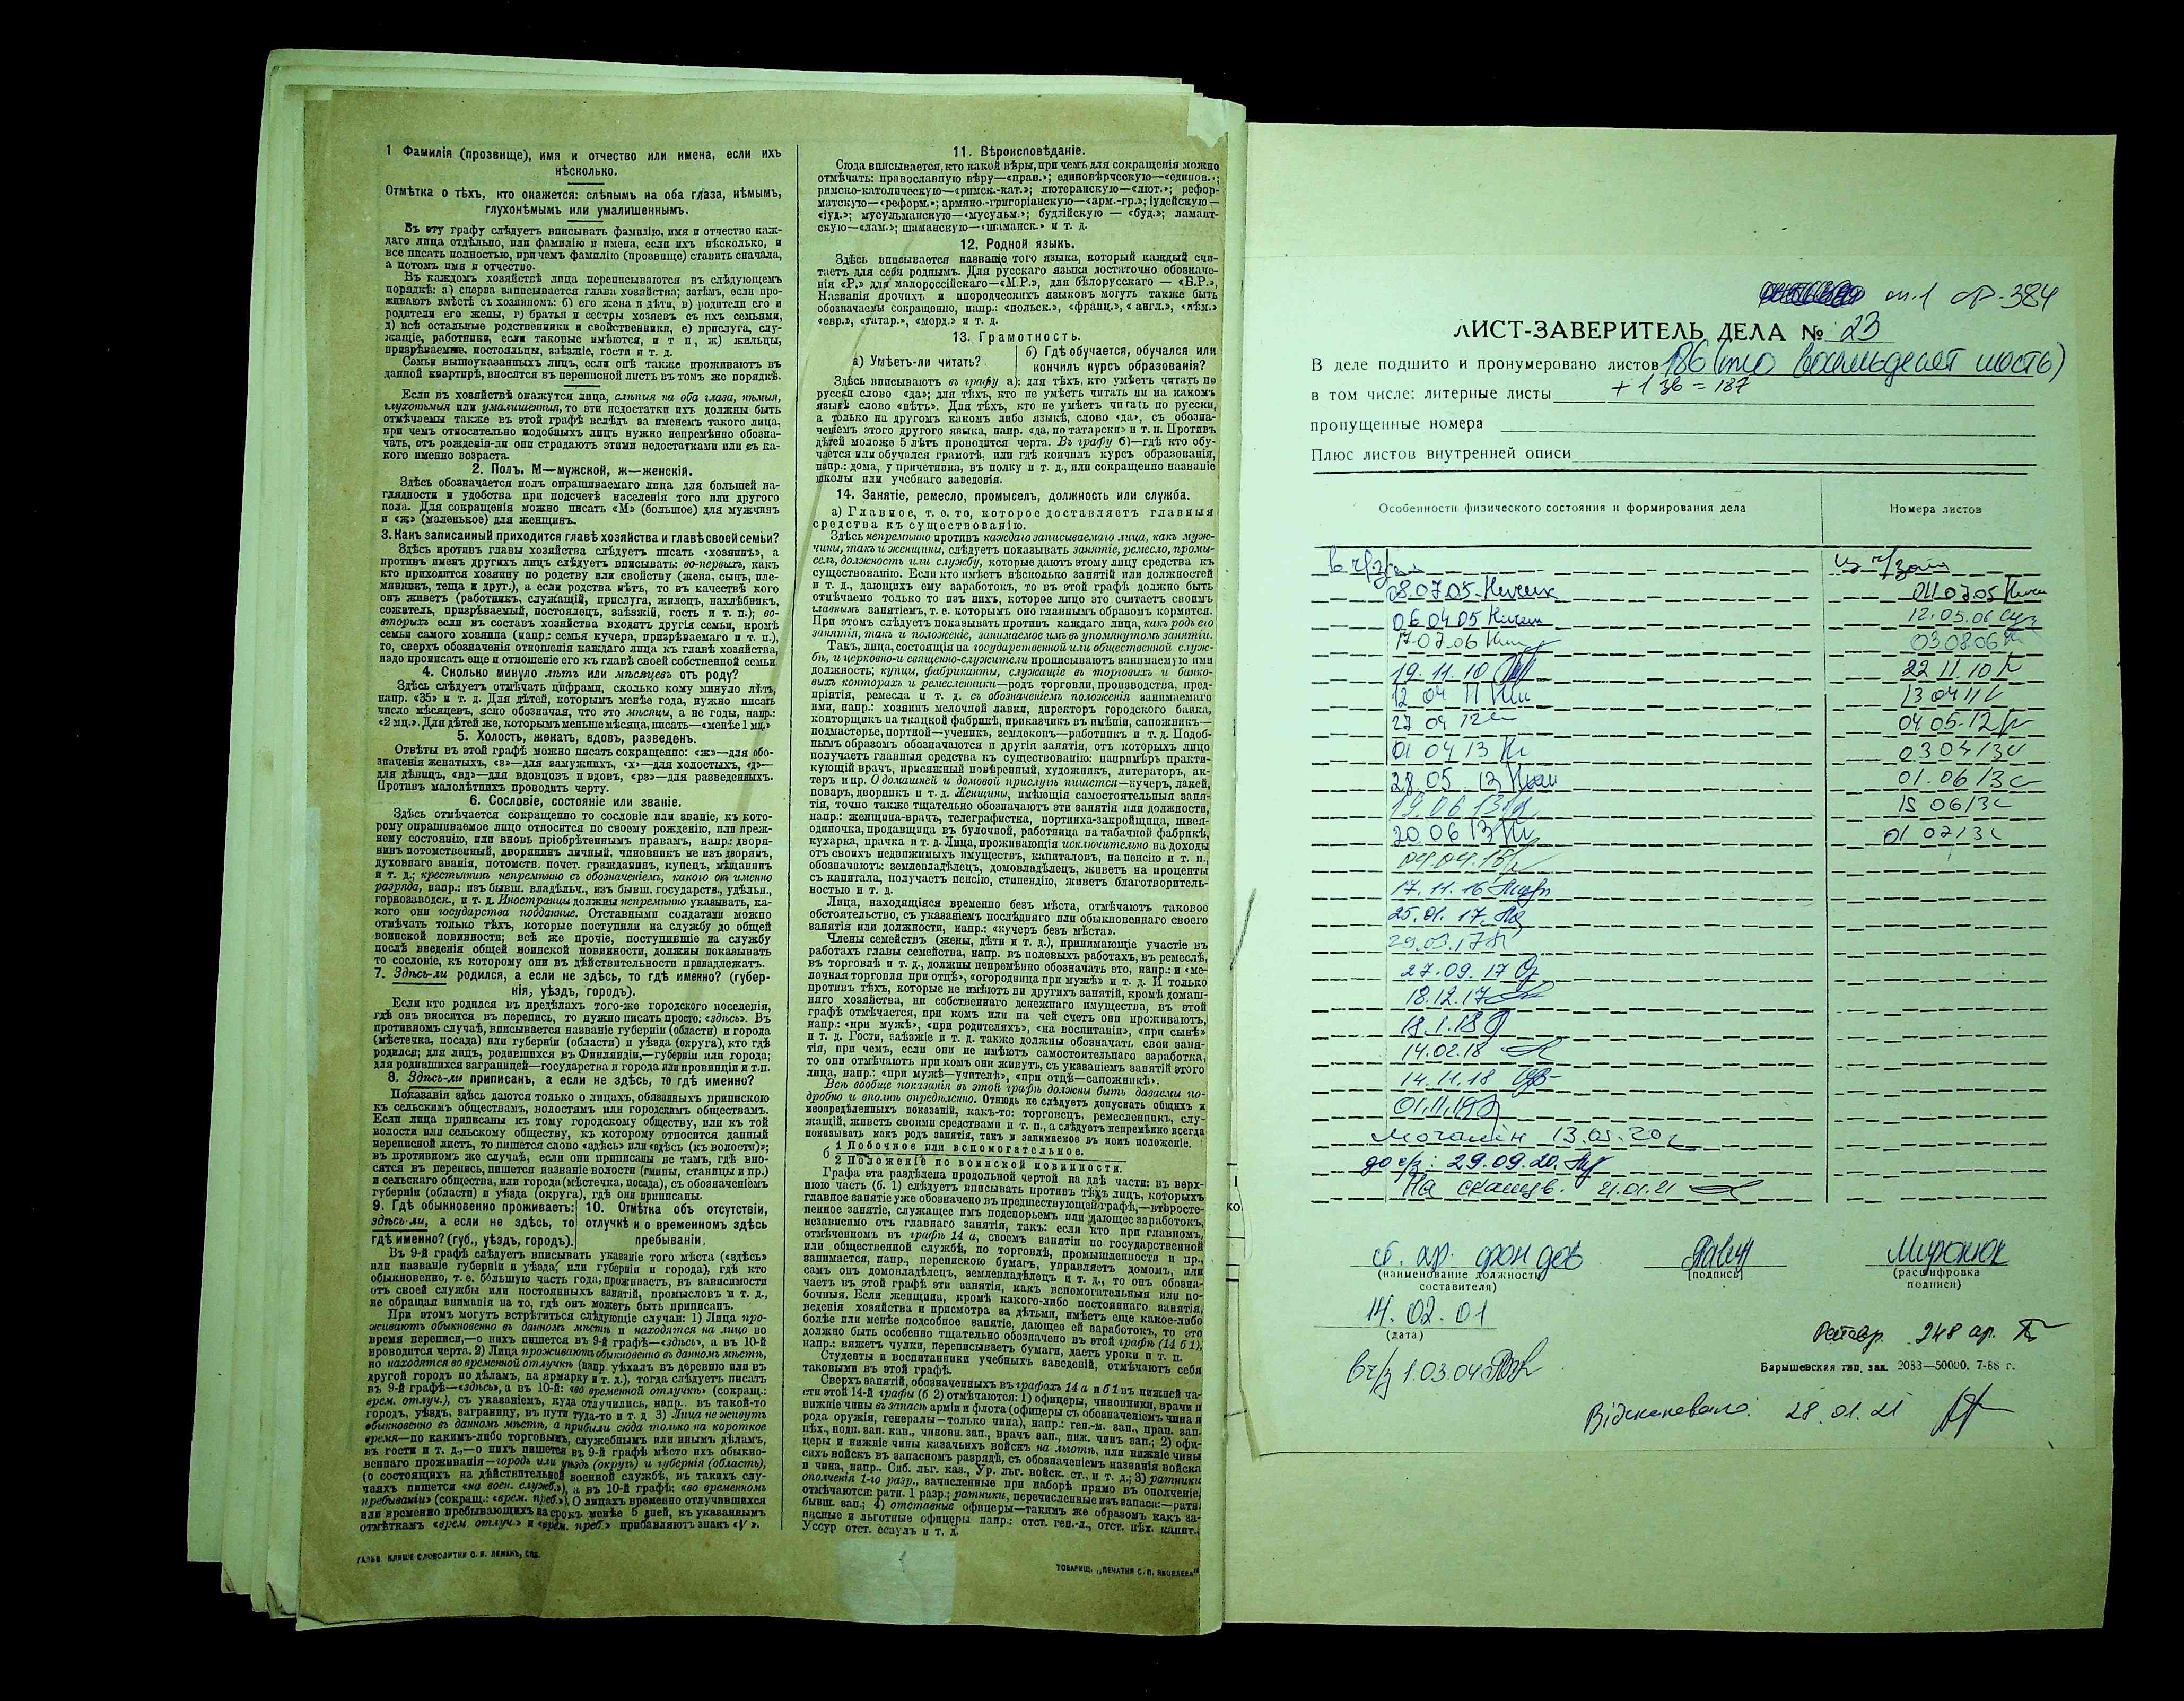 1 Фамилія (прозвище), имя и отчество или имена, если ихъ
нѣсколько.
Отмѣтка о тѣхъ, кто окажется: слѣпымъ на оба глаза, нѣмымъ,
глухонѣмымъ или умалишеннымъ.
Въ эту графу слѣдуетъ вписывать фамилію, имя и отчество каж-
даго лица отдѣльно, или фамилію и имена, если ихъ нѣсколько, и
все писать полностью, при чемъ фамилію (прозвище) ставить сначала,
а потомъ имя и отчество.
Въ каждомъ хозяйствѣ лица переписываются въ слѣдующемъ
порядкѣ: а) сперва записывается глава хозяйства; затѣмъ, если про-
живаютъ вмѣстѣ съ хозяиномъ: б) его жена и дѣти, в) родители его и
родители его жены, г) братья и сестры хозяевъ съ ихъ семьями,
д) всѣ остальные родственники и свойственники, е) прислуга, слу-
жащіе, работники, если таковые имѣются, и т п, ж) жильцы,
призрѣваемые, постояльцы, заѣзжіе, гости и т. д.
Семьи вышеуказанныхъ лицъ, если онѣ также проживаютъ въ
данной квартирѣ, вносятся въ переписной листъ въ томъ же порядкѣ.
Если въ хозяйствѣ окажутся лица, слѣпыя на оба глаза, нѣмыя,
глухонѣмыя или умалишенныя, то эти недостатки ихъ должны быть
отмѣчаемы также въ этой графѣ вслѣдъ за именемъ такого лица,
при чемъ относительно подобныхъ лицъ нужно непремѣнно обозна-
чать, отъ рожденія-ли они страдаютъ этими недостатками или съ ка-
кого именно возраста.
2. Полъ. М—мужской, ж—женскій.
Здѣсь обозначается полъ опрашиваемаго лица для большей на-
глядности и удобства при подсчетѣ населенія того или другого
пола. Для сокращенія можно писать «М» (большое) для мужчинъ
и «ж» (маленькое) для женщинъ.
3. Какъ записанный приходится главѣ хозяйства и главѣ своей семьи?
Здѣсь противъ главы хозяйства слѣдуетъ писать «хозяинъ», а
противъ именъ другихъ лицъ слѣдуетъ вписывать: во-первыхъ, какъ
кто приходится хозяину по родству или свойству (жена, сынъ, пле-
мянникъ, теща и друг.), а если родства нѣтъ, то въ качествѣ кого
онъ живетъ (работникъ, служащій, прислуга, жилецъ, нахлѣбникъ,
сожитель, призрѣваемый, постоялецъ, заѣзжій, гость и т. п.); во-
вторыхъ если въ составъ хозяйства входятъ другія семьи, кромѣ
семьи самого хозяина (напр.: семья кучера, призрѣваемаго и т. п.),
то, сверхъ обозначенія отношенія каждаго лица къ главѣ хозяйства,
надо прописать еще и отношеніе его къ главѣ своей собственной семьи
4. Сколько минуло лѣтъ или мѣсяцевъ отъ роду?
Здѣсь слѣдуетъ отмѣчать цифрами, сколько кому минуло лѣтъ,
напр. «35» и т. д. Для дѣтей, которымъ менѣе года, нужно писать
число мѣсяцевъ, ясно обозначая, что это мѣсяцы, а не годы, напр.:
«2 мц.». Для дѣтей же, которымъ меньше мѣсяца, писать—«менѣе 1 мц.»
5. Холостъ, женатъ, вдовъ, разведенъ.
Отвѣты въ этой графѣ можно писать сокращенно: «ж»—для обо-
значенія женатыхъ, «з»—для замужнихъ, «х»—для холостыхъ, «д»—
для дѣвицъ, «вд»—для вдовцовъ и вдовъ, «рз»—для разведенныхъ.
Противъ малолѣтнихъ проводить черту.
6. Сословіе, состояніе или званіе.
Здѣсь отмѣчается сокращенно то сословіе или званіе, къ кото-
рому опрашиваемое лицо относится по своему рожденію, или преж-
нему состоянію, или вновь пріобрѣтеннымъ правамъ, напр.: дворя-
нинъ потомственный, дворянинъ личный, чиновникъ не изъ дворянъ,
духовнаго званія, потомств. почет. гражданинъ, купецъ, мѣщанинъ
и т. д.; крестьянинъ непремѣнно съ обозначеніемъ, какого онъ именно
разряда, напр.: изъ бывш. владѣльч., изъ бывш. государств., удѣльн.,
горнозаводск., и т. д. Иностранцы должны непремѣнно указывать, ка-
кого они государства подданные. Отставными солдатами можно
отмѣчать только тѣхъ, которые поступили на службу до общей
воинской повинности; всѣ же прочіе, поступившіе на службу
послѣ введенія общей воинской повинности, должны показывать
то сословіе, къ которому они въ дѣйствительности принадлежатъ.
7. Здѣсь-ли родился, а если не здѣсь, то гдѣ именно? (губер-
нія, уѣздъ, городъ).
Если кто родился въ предѣлахъ того-же городского поселенія,
гдѣ онъ вносится въ перепись, то нужно писать просто: «здѣсь». Въ
противномъ случаѣ, вписывается названіе губерніи (области) и города
(мѣстечка, посада) или губерніи (области) и уѣзда (округа), кто гдѣ
родился; для лицъ, родившихся въ Финляндіи,—губерніи или города;
для родившихся заграницей—государства и города или провинціи и т.п.
8. Здѣсь-ли приписанъ, а если не здѣсь, то гдѣ именно?
Показанія здѣсь даются только о лицахъ, обязанныхъ припискою
къ сельскимъ обществамъ, волостямъ или городскимъ обществамъ.
Если лица приписаны къ тому городскому обществу, или къ той
волости или сельскому обществу, къ которому относится данный
переписной листъ, то пишется слово «здѣсь» или «здѣсь (къ волости)»;
въ противномъ же случаѣ, если они приписаны не тамъ, гдѣ вно-
сятся въ перепись, пишется названіе волости (гмины, станицы и пр.)
и сельскаго общества, или города (мѣстечка, посада), съ обозначеніемъ
губерніи (области) и уѣзда (округа), гдѣ они приписаны.
9. Гдѣ обыкновенно проживаетъ:
здѣсь-ли, а если не здѣсь, то
гдѣ именно? (губ., уѣздъ, городъ).
10. Отмѣтка объ отсутствіи,
отлучкѣ и о временномъ здѣсь
пребываніи.
Въ 9-й графѣ слѣдуетъ вписывать указаніе того мѣста («здѣсь»
или названіе губерніи и уѣзда, или губерніи и города), гдѣ кто
обыкновенно, т. е. бо́льшую часть года, проживаетъ, въ зависимости
отъ своей службы или постоянныхъ занятій, промысловъ и т. д.,
не обращая вниманія на то, гдѣ онъ можетъ быть приписанъ.
При этомъ могутъ встрѣтиться слѣдующіе случаи: 1) Лица про-
живаютъ обыкновенно въ данномъ мѣстѣ и находятся на лицо во
время переписи,—о нихъ пишется въ 9-й графѣ—«здѣсь», а въ 10-й
проводится черта. 2) Лица проживаютъ обыкновенно въ данномъ мѣстѣ,
но находятся во временной отлучкѣ (напр. уѣхалъ въ деревню или въ
другой городъ по дѣламъ, на ярмарку и т. д.), тогда слѣдуетъ писать
въ 9-й графѣ—«здѣсь», а въ 10-й: «во временной отлучкѣ» (сокращ.:
врем. отлуч.), съ указаніемъ, куда отлучились, напр.. въ такой-то
городъ, уѣздъ, заграницу, въ пути туда-то и т. д 3) Лица не живутъ
обыкновенно въ данномъ мѣстѣ, а прибыли сюда только на короткое
время—по какимъ-либо торговымъ, служебнымъ или инымъ дѣламъ,
въ гости и т. д.,—о нихъ пишется въ 9-й графѣ мѣсто ихъ обыкно-
веннаго проживанія—городъ или уѣздъ (округъ) и губернія (область),
(о состоящихъ на дѣйствительной военной службѣ, въ такихъ слу-
чаяхъ пишется «на воен. служб.»), а въ 10-й графѣ: «во временномъ
пребываніи» (сокращ.: «врем. преб.»). О лицахъ временно отлучившихся
или временно пребывающихъ на срокъ менѣе 5 дней, къ указаннымъ
отмѣткамъ «врем. отлуч.» и «врем. преб.» прибавляютъ знакъ «V».
ГАЛЬВ. КЛИШЕ СЛОВОЛИТНИ О. И. ЛЕМАНЪ, СПБ.
11. Вѣроисповѣданіе.
Сюда вписывается, кто какой вѣры, при чемъ для сокращенія можно
отмѣчать: православную вѣру—«прав.»; единовѣрческую—«единов.»;
римско-католическую—«римск.-кат.»; лютеранскую—«лют.»; рефор-
матскую—«реформ.»; армяно.-григоріанскую—«арм.-гр.»; іудейскую—
«іуд.»; мусульманскую—«мусульм.»; буддійскую — «буд.»; ламаит-
скую—«лам.»; шаманскую—«шаманск.» и т. д.
12. Родной языкъ.
Здѣсь вписывается названіе того языка, который каждый счи-
таетъ для себя роднымъ. Для русскаго языка достаточно обозначе-
нія «Р.» для малороссійскаго—«М.Р.», для бѣлорусскаго — «Б.Р.»,
Названія прочихъ и инородческихъ языковъ могутъ также быть
обозначаемы сокращенно, напр.: «польск.», «франц.», « англ.», «нѣм.»
«евр.», «татар.», «морд.» и т. д.
13. Грамотность.
а) Умѣетъ-ли читать?
б) Гдѣ обучается, обучался или
кончилъ курсъ образованія?
Здѣсь вписываютъ въ графу а): для тѣхъ, кто умѣетъ читать по
русски слово «да»; для тѣхъ, кто не умѣетъ читать ни на какомъ
языкѣ слово «нѣтъ». Для тѣхъ, кто не умѣетъ читать по русски,
а только на другомъ какомъ либо языкѣ, слово «да», съ обозна-
ченіемъ этого другого языка, напр. «да, по татарски» и т. п. Противъ
дѣтей моложе 5 лѣтъ проводится черта. Въ графу б)—гдѣ кто обу-
чается или обучался грамотѣ, или гдѣ кончилъ курсъ образованія,
напр.: дома, у причетника, въ полку и т. д., или сокращенно названіе
школы или учебнаго заведенія.
14. Занятіе, ремесло, промыселъ, должность или служба.
а) Главное, т. е. то, которое доставляетъ главныя
средства къ существованію.
Здѣсь непремѣнно противъ каждаго записываемаго лица, какъ муж-
чины, такъ и женщины, слѣдуетъ показывать занятіе, ремесло, промы-
селъ, должность или службу, которые даютъ этому лицу средства къ
существованію. Если кто имѣетъ нѣсколько занятій или должностей
и т. д., дающихъ ему заработокъ, то въ этой графѣ должно быть
отмѣчаемо только то изъ нихъ, которое лицо это считаетъ своимъ
главнымъ занятіемъ, т. е. которымъ оно главнымъ образомъ кормится.
При этомъ слѣдуетъ показывать противъ каждаго лица, какъ родъ его
занятія, такъ и положеніе, занимаемое имъ въ упомянутомъ занятіи.
Такъ, лица, состоящія на государственной или общественной служ-
бѣ, и церковно-и священно-служители прописываютъ занимаемую ими
должность; купцы, фабриканты, служащіе въ торговыхъ и банко-
выхъ конторахъ и ремесленники—родъ торговли, производства, пред-
пріятія, ремесла и т. д. съ обозначеніемъ положенія занимаемаго
ими, напр.: хозяинъ мелочной лавки, директоръ городского банка,
конторщикъ на ткацкой фабрикѣ, приказчикъ въ имѣніи, сапожникъ—
подмастерье, портной—ученикъ, землекопъ—работникъ и т. д. Подоб-
нымъ образомъ обозначаются и другія занятія, отъ которыхъ лицо
получаетъ главныя средства къ существованію: напримѣръ практи-
кующій врачъ, присяжный повѣренный, художникъ, литераторъ, ак-
теръ и пр. О домашней и домовой прислугѣ пишется—кучеръ, лакей,
поваръ, дворникъ и т. д. Женщины, имѣющія самостоятельныя заня-
тія, точно также тщательно обозначаютъ эти занятія или должности,
напр.: женщина-врачъ, телеграфистка, портниха-закройщица, швея-
одиночка, продавщица въ булочной, работница на табачной фабрикѣ,
кухарка, прачка и т. д. Лица, проживающія исключительно на доходы
отъ своихъ недвижимыхъ имуществъ, капиталовъ, на пенсію и т. п.,
обозначаютъ: землевладѣлецъ, домовладѣлецъ, живетъ на проценты
съ капитала, получаетъ пенсію, стипендію, живетъ благотворитель-
ностью и т. д.
Лица, находящіяся временно безъ мѣста, отмѣчаютъ таковое
обстоятельство, съ указаніемъ послѣдняго или обыкновеннаго своего
занятія или должности, напр.: «кучеръ безъ мѣста».
Члены семействъ (жены, дѣти и т. д.), принимающіе участіе въ
работахъ главы семейства, напр. въ полевыхъ работахъ, въ ремеслѣ,
въ торговлѣ и т. д., должны непремѣнно обозначать это, напр.: и «ме-
лочная торговля при отцѣ», «огородница при мужѣ» и т. д. И только
противъ тѣхъ, которые не имѣютъ ни другихъ занятій, кромѣ домаш-
няго хозяйства, ни собственнаго денежнаго имущества, въ этой
графѣ отмѣчается, при комъ или на чей счетъ они проживаютъ,
напр.: «при мужѣ», «при родителяхъ», «на воспитаніи», «при сынѣ»
и т. д. Гости, заѣзжіе и т. д. также должны обозначать свои заня-
тія, при чемъ, если они не имѣютъ самостоятельнаго заработка,
то они отмѣчаютъ при комъ они живутъ, съ указаніемъ занятій этого
лица, напр.: «при мужѣ—учителѣ», «при отцѣ—сапожникѣ».
Всѣ вообще показанія въ этой графѣ должны быть даваемы по-
дробно и вполнѣ опредѣленно. Отнюдь не слѣдуетъ допускать общихъ и
неопредѣленныхъ показаній, какъ-то: торговецъ, ремесленникъ, слу-
жащій, живетъ своими средствами и т. п., а слѣдуетъ непремѣнно всегда
показывать какъ родъ занятія, такъ и занимаемое въ немъ положеніе.
б 1 Побочное или вспомогательное.
2 Положеніе по воинской повинности.
Графа эта раздѣлена продольной чертой на двѣ части: въ верх-
нюю часть (б. 1) слѣдуетъ вписывать противъ тѣхъ лицъ, которыхъ
главное занятіе уже обозначено въ предшествующей графѣ,—второсте-
пенное занятіе, служащее имъ подспорьемъ или дающее заработокъ,
независимо отъ главнаго занятія, такъ: если кто при главномъ,
отмѣченномъ въ графѣ 14 а, своемъ занятіи по государственной
или общественной службѣ, по торговлѣ, промышленности и пр.,
занимается, напр., перепискою бумагъ, управляетъ домомъ, или
самъ онъ домовладѣлецъ, землевладѣлецъ и т. д., то онъ обозна-
чаетъ въ этой графѣ эти занятія, какъ вспомогательныя или по-
бочныя. Если женщина, кромѣ какого-либо постояннаго занятія,
веденія хозяйства и присмотра за дѣтьми, имѣетъ еще какое-либо
болѣе или менѣе подсобное занятіе, дающее ей заработокъ, то это
должно быть особенно тщательно обозначено въ этой графѣ (14 б 1),
напр.: вяжетъ чулки, переписываетъ бумаги, даетъ уроки и т. п.
Студенты и воспитанники учебныхъ заведеній, отмѣчаютъ себя
таковыми въ этой графѣ.
Сверхъ занятій, обозначенныхъ въ графахъ 14 а и б 1 въ нижней ча-
сти этой 14-й графы (б 2) отмѣчаются: 1) офицеры, чиновники, врачи и
нижніе чины въ запасѣ арміи и флота (офицеры съ обозначеніемъ чина и
рода оружія, генералы—только чина), напр.: ген.-м. зап., прап. зап.
пѣх., подп. зап. кав., чиновн. зап., врачъ зап., ниж. чинъ зап.; 2) офи-
церы и нижніе чины казачьихъ войскъ на льготѣ, или нижніе чины
сихъ войскъ въ запасномъ разрядѣ, съ обозначеніемъ названія войска
и чина, напр.. Сиб. льг. каз., Ур. льг. войск. ст., и т. д.; 3) ратники
ополченія 1-го разр., зачисленные при наборѣ прямо въ ополченіе,
отмѣчаются: ратн. 1 разр.; ратники, перечисленные изъ запаса:—ратн.
бывш. зап.; 4) отставные офицеры—такимъ же образомъ какъ за-
пасные и льготные офицеры напр.: отст. ген.-л., отст. пѣх. капит.,
Уссур отст. есаулъ и т. д.
ТОВАРИЩ. „ПЕЧАТНЯ С. П. ЯКОВЛЕВА“
оп.1 ср-384
ЛИСТ-ЗАВЕРИТЕЛЬ ДЕЛА № 23
В деле подшито и пронумеровано листов 186 (сто восемьдесят шесть)
+ 1 зв = 187
в том числе: литерные листы
пропущенные номера
Плюс листов внутренней описи
Особенности физического состояния и формирования дела
Номера листов
в ч/зал
из ч/зала
08.07.05
011.07.05
06.04.05
12.05.06
17.07.06
03.08.06
19.11.10
22.11.10
12 04 11
13 04 11
27 04 12
04 05.12
01 04 13
03 04 13
28.05 13
01.06 13
19.06 13
15 06 13
20 06 13
01 07 13
04.04.16
17.11.16
25.01.17
29.03.17
27.09.17
18.12.17
18.1.18
14.02.18
14.11.18
01.11.19
13.05.20
до ч/з: 29.09.20
На сканув. 21.01.21
ст. хр. фондов
Миронюк
(наименование должности
составителя)
(подпись)
(расшифровка
подписи)
14.02.01
(дата)
Реставр. 248 ар.
в ч/з 1.03.04
Барышевская тип, зак. 2083—50000. 7-88 г.
Відскановано. 28.01.21